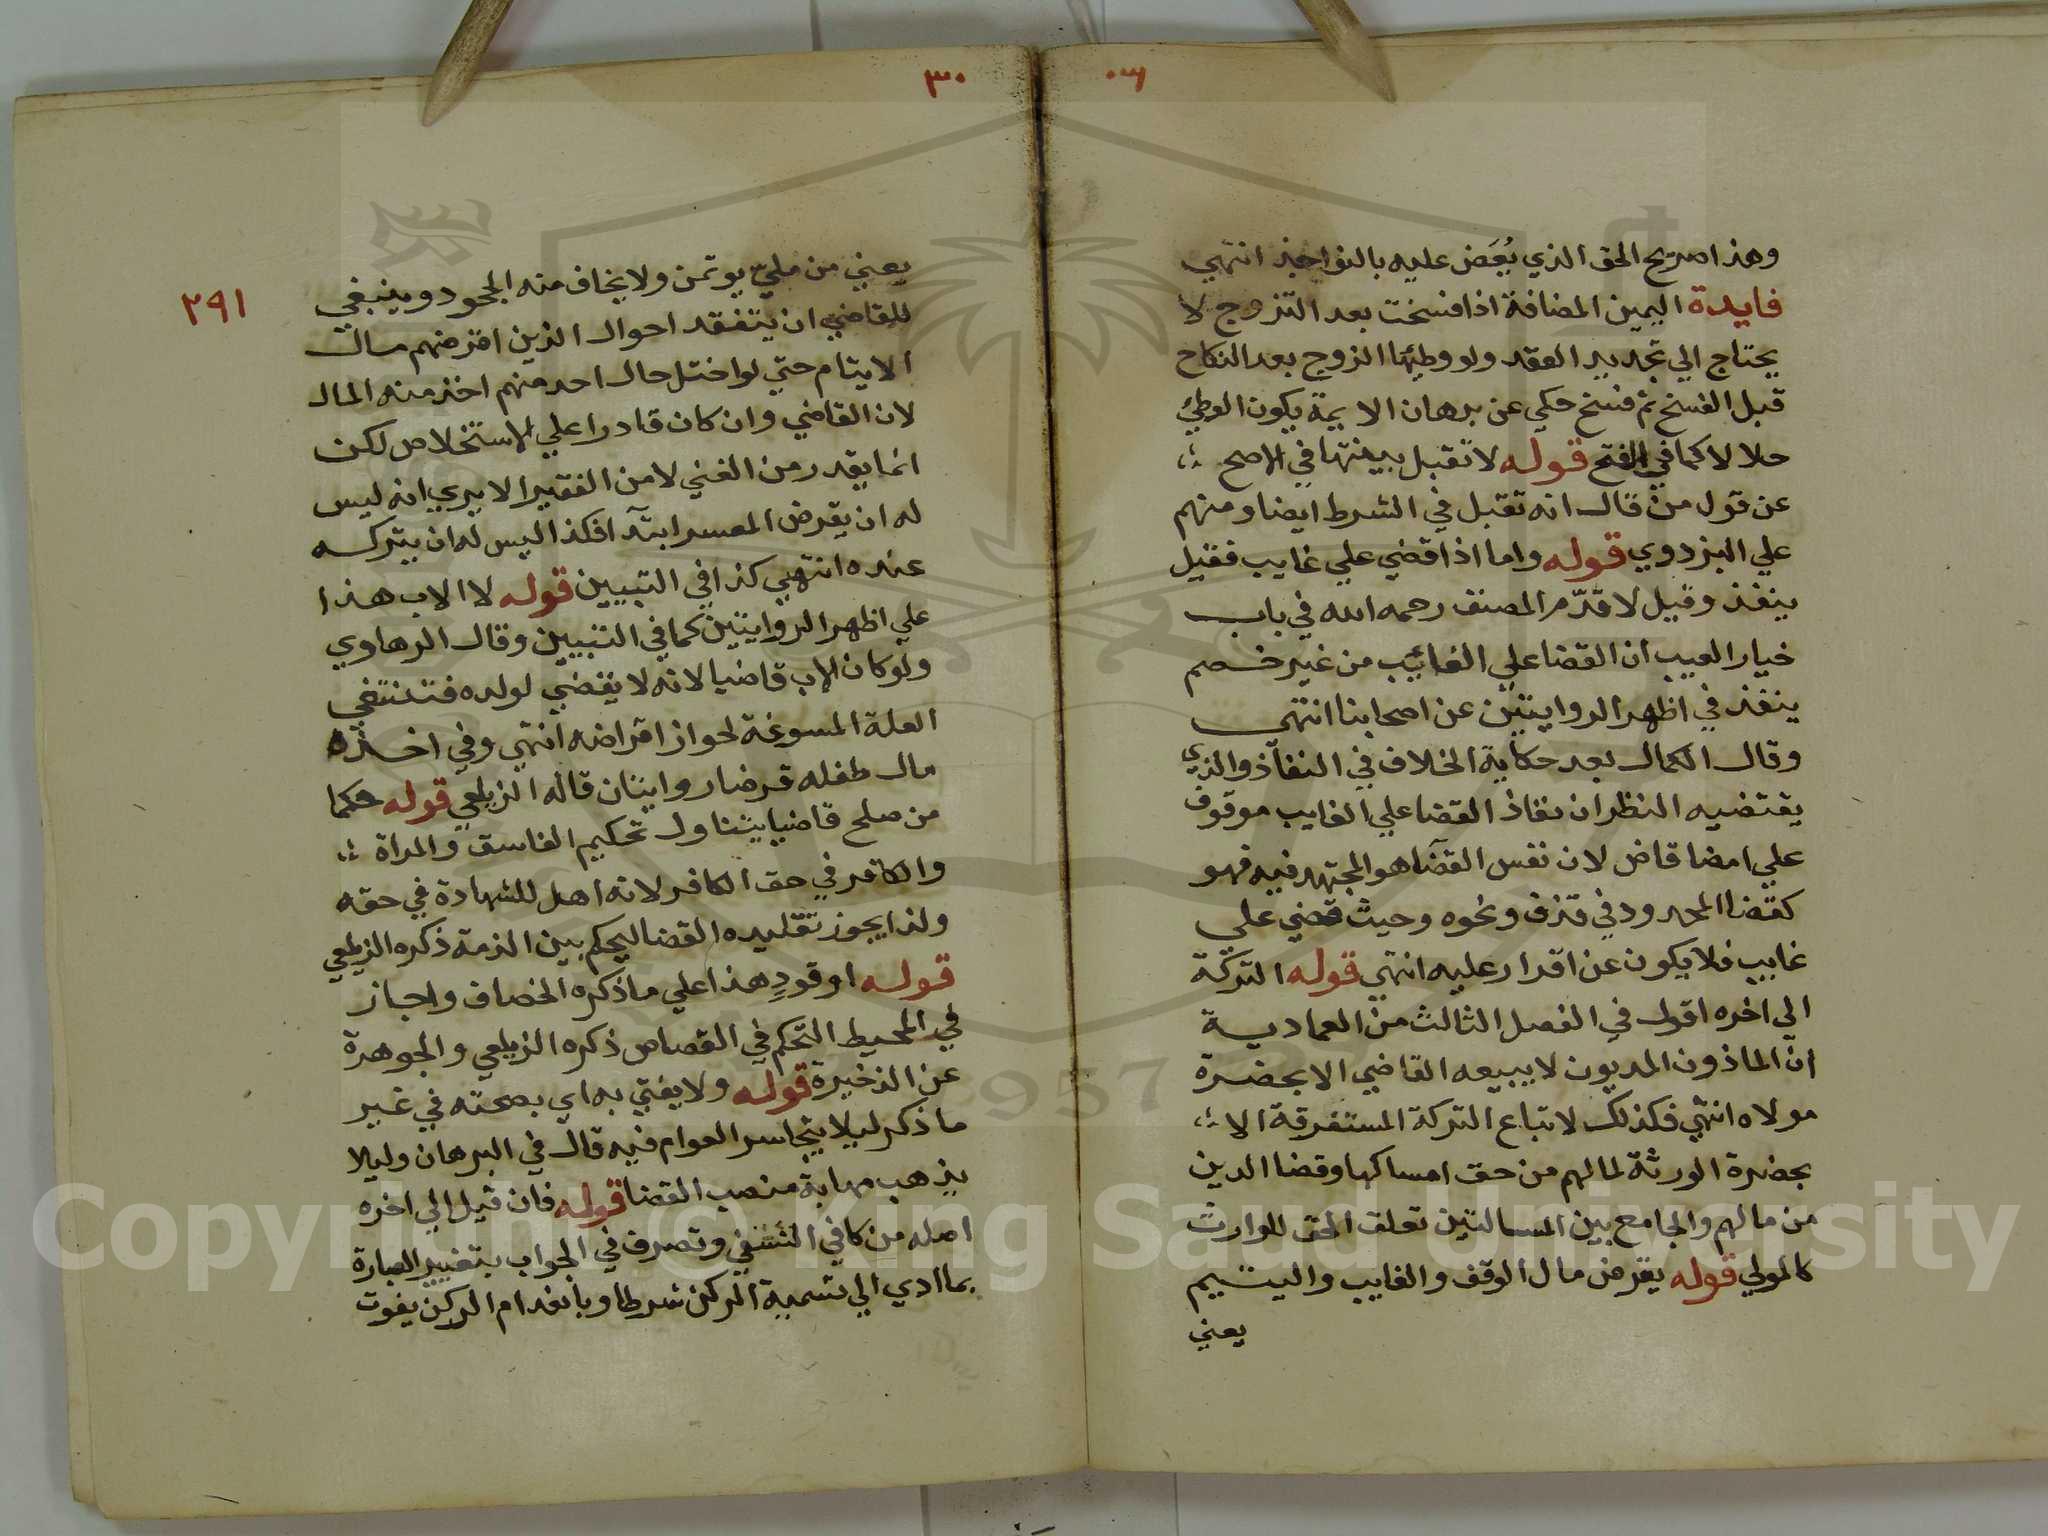 ٣٠
وهذا صريح الحق الذي يُعَض عليه بالنواجذ انتهي
فايدة اليمين المضافة اذا فسخت بعد التزوج لا
يحتاج الي تجديد العقد ولو وطئها الزوج بعد النكاح
قبل الفسخ ثم فسخ حكي عن برهان الايمة يكون الوطئ
حلالا كما في الفتح قوله لا تقبل بينتها في الاصح
عن قول من قال انه تقبل في الشرط ايضا ومنهم
علي البزدوي قوله واما اذا قضي علي غايب فقيل
ينفذ وقيل لا قدّم المصنف رحمه الله في باب
خيار العيب ان القضا علي الغائب من غير خصم
ينفذ في اظهر الروايتين عن اصحابنا انتهي
وقال الكمال بعد حكاية الخلاف في النفاذ والذي
يقتضيه النظر ان نفاذ القضا علي الغايب موقوف
علي امضا قاض لان نفس القضآ هو المجتهد فيه فهو
كقضا المحدود في قذف ونحوه وحيث قضي علي
غايب فلا يكون عن اقرار عليه انتهي قوله التركة
الي اخره اقول في الفصل الثالث من العمادية
ان الماذون المديون لا يبيعه القاضي الا بحضرة
مولاه انتهي فكذلك لا تباع التركة المستغرقة الا
بحضرة الورثة لما لهم من حق امساكها وقضا الدين
من مالهم والجامع بين المسالتين تعلق الحق للوارث
كالمولي قوله يقرض مال الوقف والغايب واليتيم
يعني
٣٠
٢٩١
يعني من مليّ يوتمن ولا يخاف منه الجحود وينبغي
للقاضي ان يتفقد احوال الذين اقرضهم مال
الايتام حتي لو اختل حال احد منهم اخذ منه المال
لان القاضي وان كان قادرا علي الاستخلاص لكن
انما يقدر من الغني لا من الفقير الا يري انه ليس
له ان يقرض المعسر ابتدآ فكذا ليس له ان يتركه
عنده انتهي كذا في التبيين قوله لا الاب هذا
علي اظهر الروايتين كما في التبيين وقال الرهاوي
ولو كان الاب قاضيا لانه لا يقضي لولده فتنتفي
العلة المسوغة لجواز اقراضه انتهي وفي اخذه
مال طفله قرضا روايتان قاله الزيلعي قوله حكما
من صلح قاضيا يتناول تحكيم الفاسق والمراة
والكافر في حق الكافر لانه اهل للشهادة في حقه
ولذا يجوز تقليده القضا ليحكم بين الذمة ذكره الزيلعي
قوله او قودٍ هذا علي ما ذكره الخصاف واجاز
في المحيط التحكم في القصاص ذكره الزيلعي والجوهرة
عن الذخيرة قوله ولا يفتي به اي بصحته في غير
ما ذكر ليلا يتجاسر العوام فيه قال في البرهان وليلا
يذهب مهابة منصب القضا قوله فان قيل الي اخره
اصله من كافي النسفي وتصرف في الجواب بتغيير العبارة
بما ادي الي تسمية الركن شرطا وبانعدام الركن يفوت
Copyright © King Saud University
1957